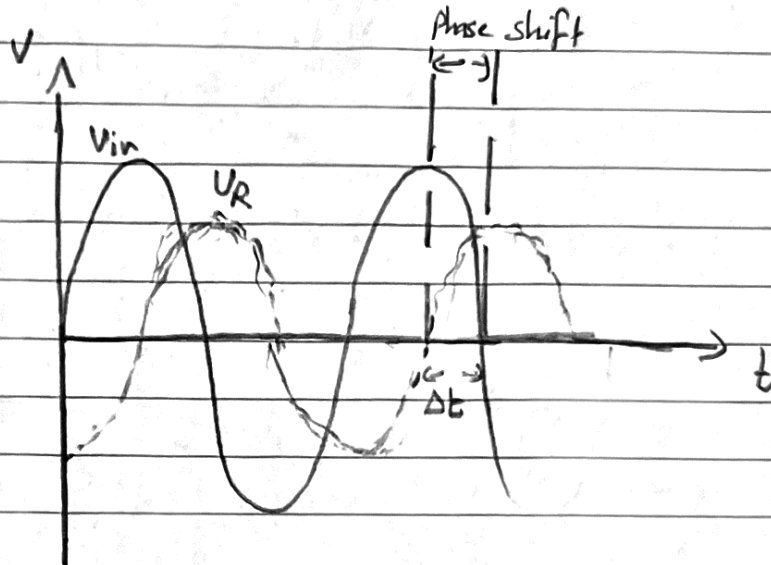 Phase shift
V
Vin
VR
t
Δt